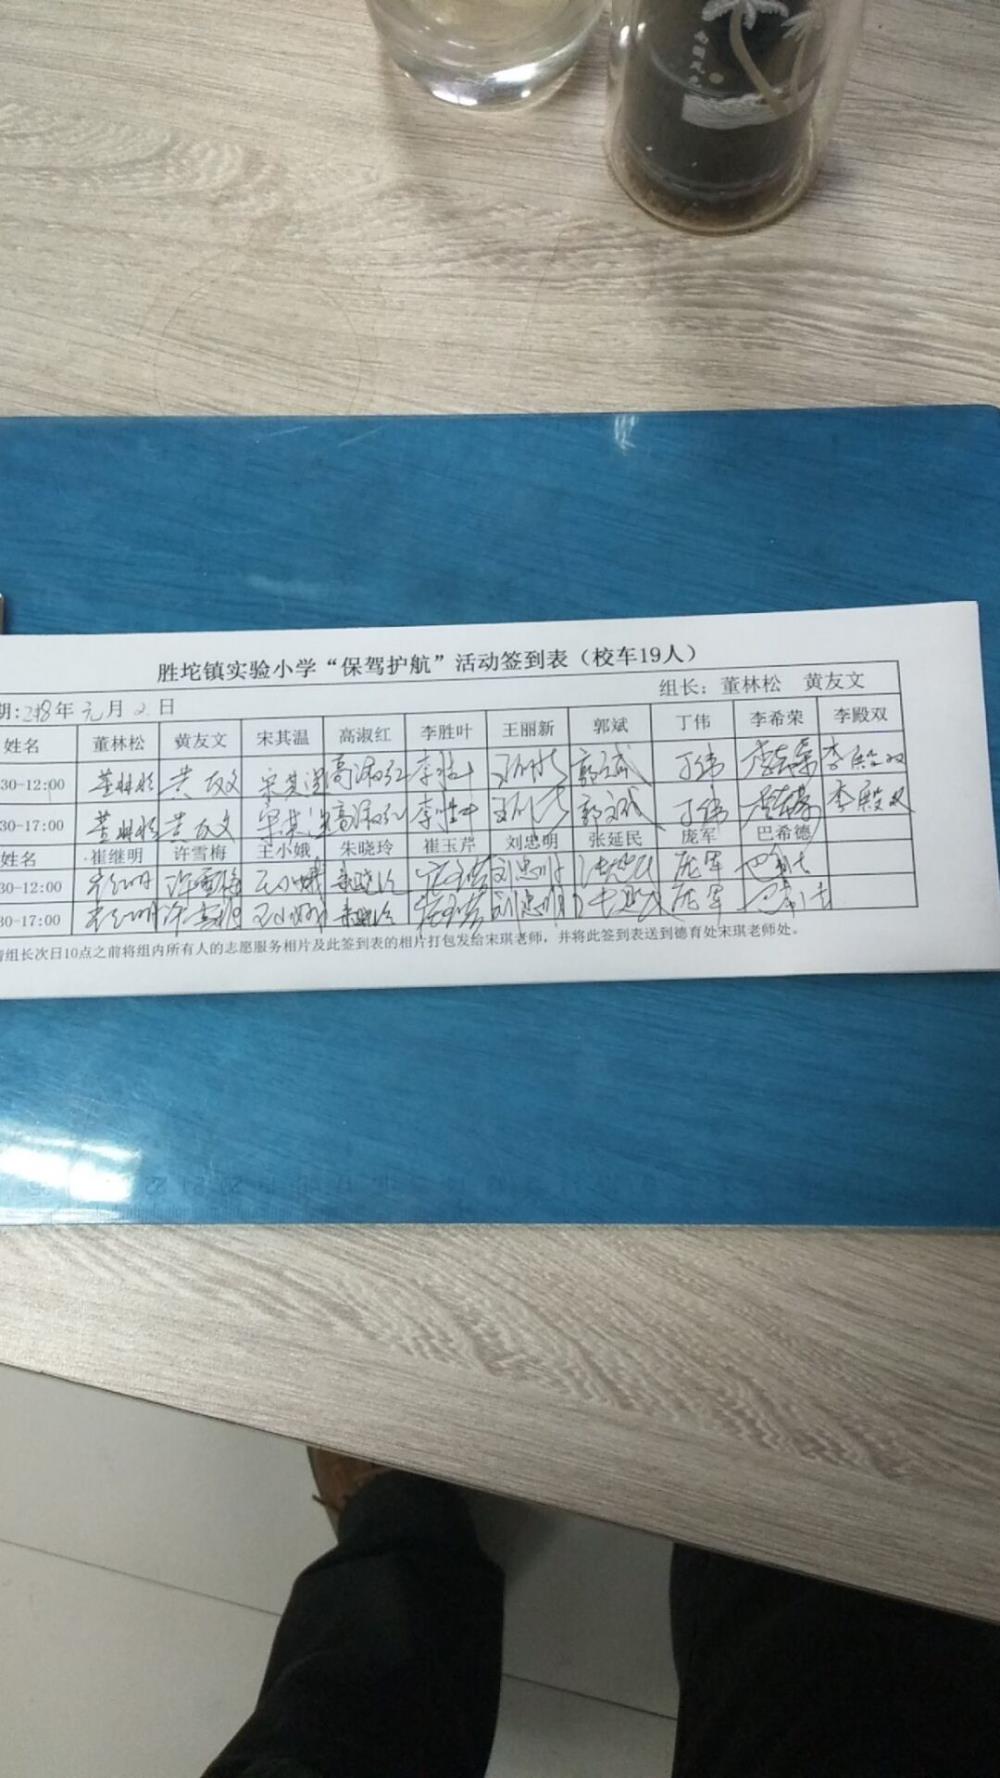 胜坨镇实验小学“保驾护航”活动签到表（校车19人）
期:2018年元月2日 组长：董林松 黄友文
姓名 董林松 黄友文 宋其温 高淑红 李胜叶 王丽新 郭斌 丁伟 李希荣 李殿双
30-12:00 董林松 黄友文 宋其温 高淑红 李胜叶 王丽新 郭斌 丁伟 李希荣 李殿双
30-17:00 董林松 黄友文 宋其温 高淑红 李胜叶 王丽新 郭斌 丁伟 李希荣 李殿双
姓名 崔继明 许雪梅 王小娥 朱晓玲 崔玉芹 刘忠明 张延民 庞军 巴希德
30-12:00 崔继明 许雪梅 王小娥 朱晓玲 崔玉芹 刘忠明 张延民 庞军 巴希德
30-17:00 崔继明 许雪梅 王小娥 朱晓玲 崔玉芹 刘忠明 张延民 庞军 巴希德
请组长次日10点之前将组内所有人的志愿服务相片及此签到表的相片打包发给宋琪老师，并将此签到表送到德育处宋琪老师处。